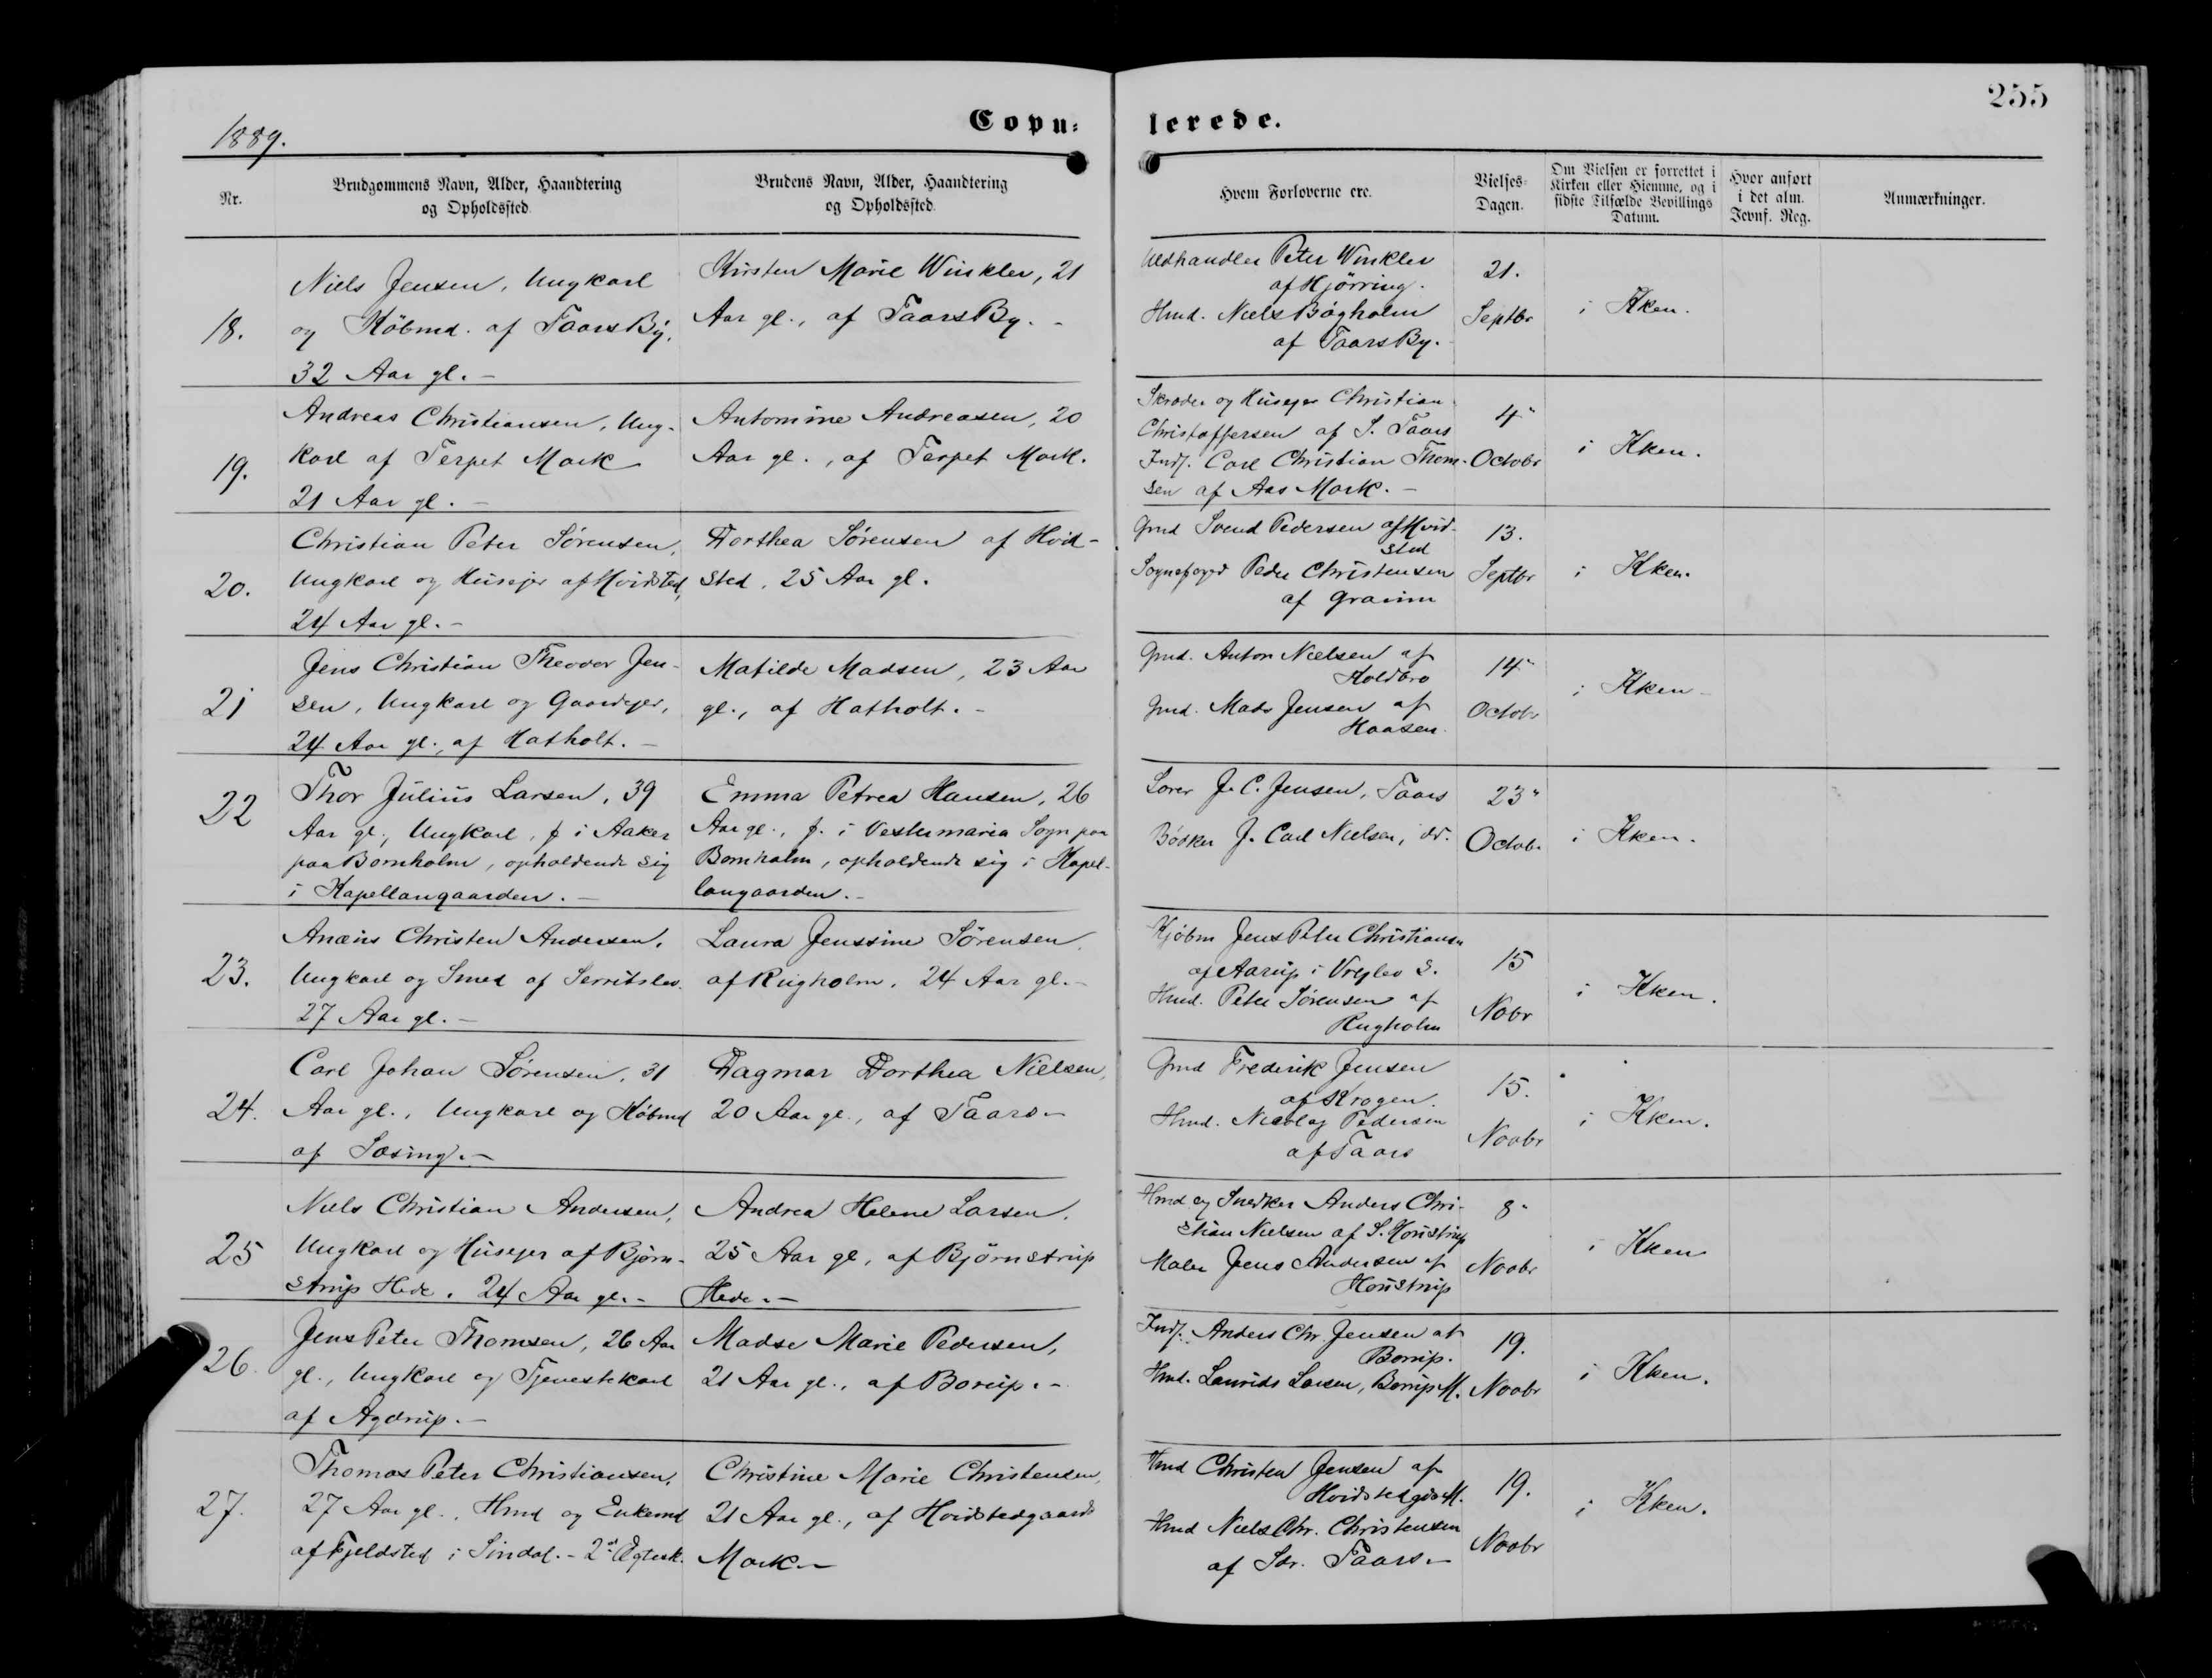 255
1889.
Copu= lerede.
Nr.
Brudgommens Navn, Alder, Haandtering
og Opholdssted.
Brudens Navn, Alder, Haandtering
og Opholdssted.
Hvem Forloverne ere.
Vielses-
Dagen.
Om Vielsen er forrettet i
Kirken eller Hiemme, og i
sidste Tilfælde Bevillings
Datum.
Hvor anført
i det alm.
Jevnf. Reg.
Anmærkninger.
18.
Niels Jensen, Ungkarl
og Købmd. af Taars By,
32 Aar gl. -
Kirsten Marie Winkler, 21
Aar gl., af Taars By. -
Uldhandler Peter Winkler
af Hjørring.
Hmd. Niels Bøgholm
af Taars By.
21.
Septbr
i Kken.
19.
Andreas Christiansen, Ung-
karl af Terpet Mark
21 Aar gl. -
Antomine Andreasen, 20
Aar gl., af Terpet Mark.
Skræder og Husejer Christian
Christoffersen af S. Taars
Indf. Carl Christian Thom-
sen af Aas Mark. -
4.
Octobr
i Kken.
20.
Christian Peter Sørensen,
Ungkarl og Husejer af Hvidsted,
24 Aar gl. -
Dorthea Sørensen af Hvid-
sted, 25 Aar gl.
Gmd Svend Pedersen af Hvid-
sted
Sognefoged Peder Christensen
af Gramm
13.
Septbr
i Kken.
21
Jens Christian Theodor Jen-
sen, Ungkarl og Gaardejer,
24 Aar gl., af Hatholt. -
Matilde Madsen, 23 Aar
gl., af Hatholt. -
Gmd. Anton Nielsen af
Holdbro
Gmd. Mads Jensen af
Haasen.
14.
Octobr
i Kken -
22
Thor Julius Larsen, 39
Aar gl., Ungkarl, f i Aaker
paa Bornholm, opholdende sig
i Kapellangaarden. -
Emma Petrea Hansen, 26
Aar gl., f. i Vestermaria Sogn paa
Bornholm, opholdende sig i Kapel-
langaarden. -
Lærer J. C. Jensen, Taars
Bødker J. Carl Nielsen, do.
23.
Octob.
i Kken.
23.
Anæus Christen Andersen,
Ungkarl og Smed af Serritslev.
27 Aar gl. -
Laura Jenssine Sørensen
af Rugholm, 24 Aar gl. -
Kjøbm Jens Peter Christiansen
af Aarup i Vrejlev S.
Hmd. Peter Sørensen af
Rugholm
15
Nobr
i Kken.
24.
Carl Johan Sørensen, 31
Aar gl., Ungkarl og Købmd
af Sæsing. -
Dagmar Dorthea Nielsen,
20 Aar gl., af Taars -
Gmd Frederik Jensen
af Krogen.
Hmd. Nicolaj Pedersen
af Taars
15.
Novbr
i Kken.
25
Niels Christian Andersen,
Ungkarl og Husejer af Bjørn-
strup Hede, 24 Aar gl. -
Andrea Helene Larsen,
25 Aar gl, af Bjørnstrup
Hede. -
Hmd og Snedker Anders Chri-
stian Nielsen af S. Houstrup
Maler Jens Andersen af
Houstrup
8.
Novbr
i Kken
26.
Jens Peter Thomsen, 26 Aar
gl., Ungkarl og Tjenestekarl
af Agdrup. -
Madse Marie Pedersen,
21 Aar gl., af Borup. -
Indf. Anders Chr. Jensen af
Borup.
Hmd. Laurids Larsen, Borup M.
19.
Novbr
i Kken.
27.
Thomas Peter Christiansen,
27 Aar gl., Hmd og Enkemd
af Fjeldsted i Sindal. - 2d Ægtesk.
Christine Marie Christensen,
21 Aar gl., af Hvidstedgaards
Mark. -
Hmd Christen Jensen af
Hvidstedgds M.
Hmd Niels Chr. Christensen
af Sdr. Taars. -
19.
Novbr
i Kken.